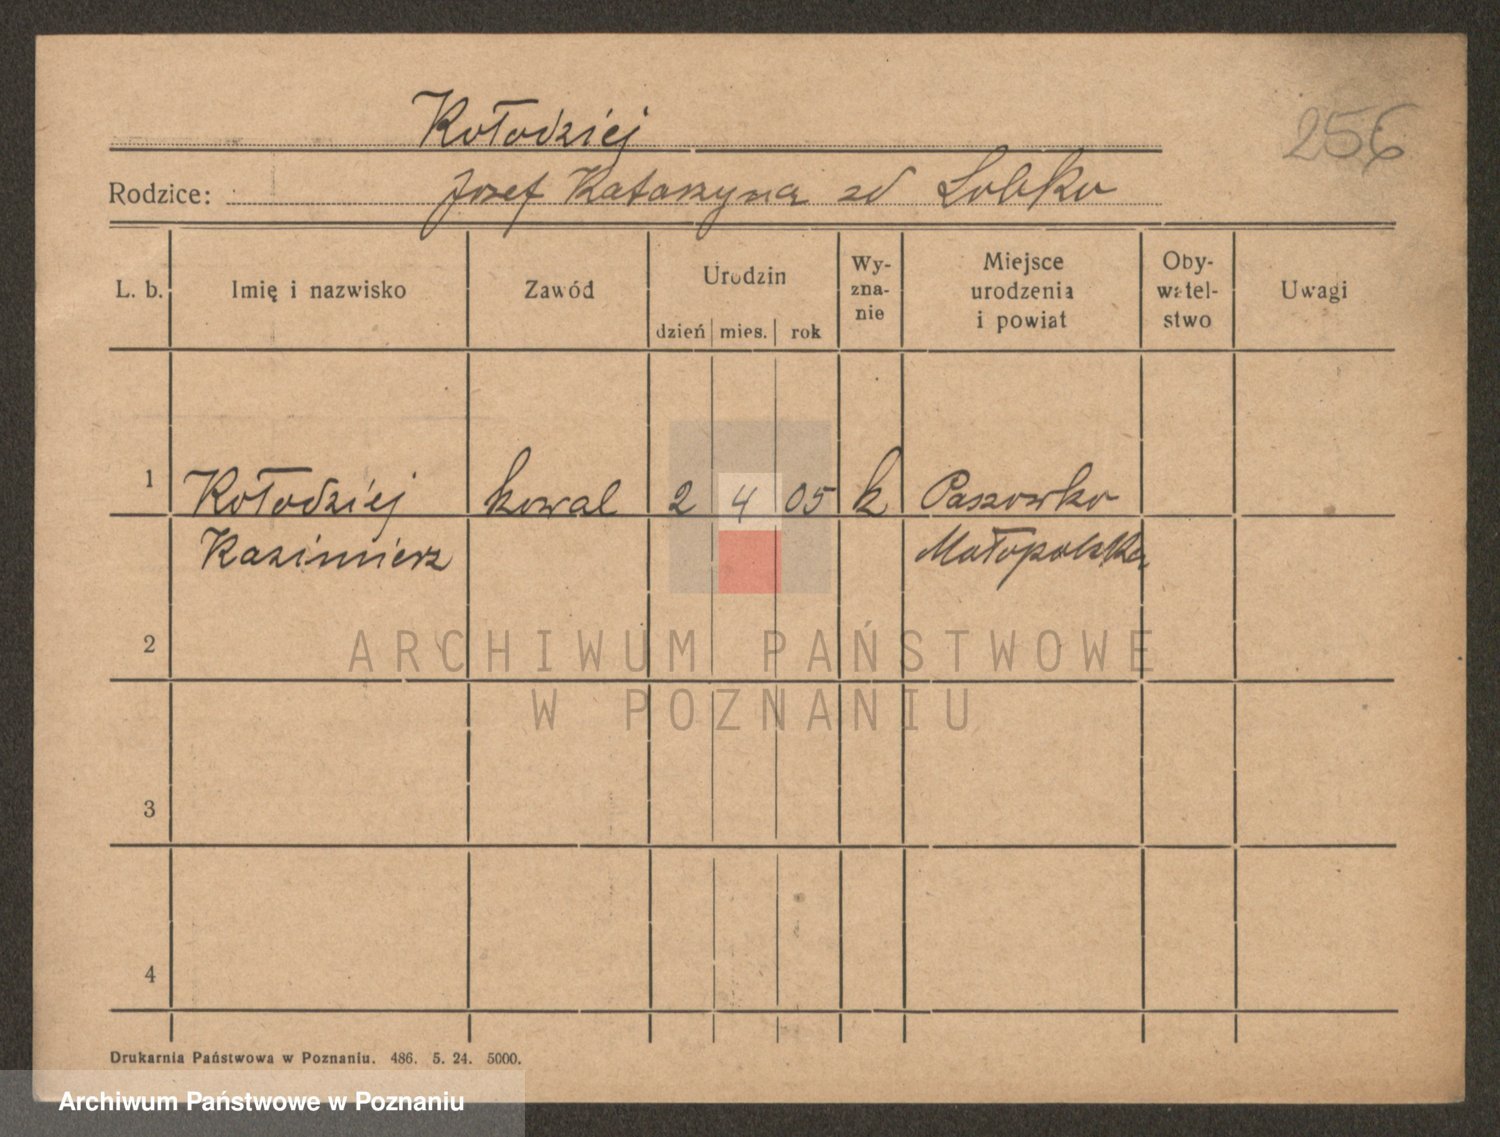 Kołodziej
256
Rodzice: Józef Katarzyna zd
L. b. Imię i nazwisko Zawód Urodzin dzień mies. rok Wy-zna-nie Miejsce urodzenia i powiat Oby-watel-stwo Uwagi
1 Kołodziej kowal 2 4 05 k Paszowko
Kazimierz Małopolska
2
ARCHIWUM PAŃSTWOWE
W POZNANIU
3
4
Drukarnia Państwowa w Poznaniu. 486. 5. 24. 5000.
Archiwum Państwowe w Poznaniu